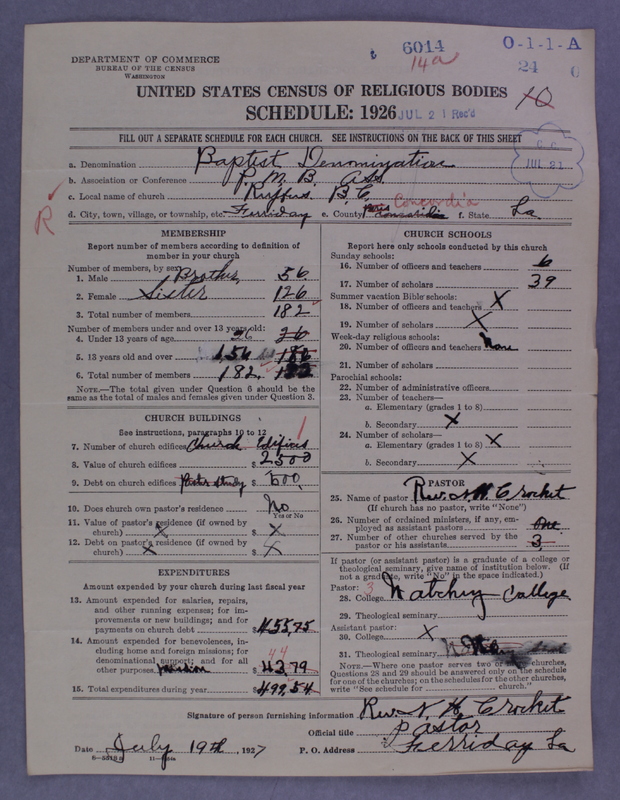 DEPARTMENT OF COMMERCE
BUREAU OF THE CENSUS
WASHINGTON
6014
14a
O-1-1-A
24
UNITED STATES CENSUS OF RELIGIOUS BODIES
SCHEDULE: 1926
JUL 21 Rec'd
10
FILL OUT A SEPARATE SCHEDULE FOR EACH CHURCH. SEE INSTRUCTIONS ON THE BACK OF THIS SHEET
JUL 21
a. Denomination Baptist Denomination
b. Association or Conference P. M. B. Ass.
c. Local name of church Ruffus B.C.
R
d. City, town, village, or township, etc. Ferriday e. County Concordia f. State La
MEMBERSHIP
Report number of members according to definition of member in your church
Number of members, by sex:
1. Male Brother 56
2. Female Sister 126
3. Total number of members 182
Number of members under and over 13 years old:
4. Under 13 years of age 26 26
5. 13 years old and over 156
6. Total number of members 182
NOTE.—The total given under Question 6 should be the
same as the total of males and females given under Question 3.
CHURCH BUILDINGS
See instructions, paragraphs 10 to 12
7. Number of church edifices Church Edifices 1
8. Value of church edifices $ 2500
9. Debt on church edifices $ 600
10. Does church own pastor's residence No
Yes or No
11. Value of pastor's residence (if owned by
church) X $ X
12. Debt on pastor's residence (if owned by
church) X $ X
EXPENDITURES
Amount expended by your church during last fiscal year
13. Amount expended for salaries, repairs,
and other running expenses; for im-
provements or new buildings; and for
payments on church debt $ 455,75
14. Amount expended for benevolences, in-
cluding home and foreign missions; for
denominational support; and for all
other purposes $ 43,79
44
15. Total expenditures during year $ 499,54
CHURCH SCHOOLS
Report here only schools conducted by this church
Sunday schools:
16. Number of officers and teachers 6
17. Number of scholars 39
Summer vacation Bible schools:
18. Number of officers and teachers X
19. Number of scholars X
Week-day religious schools:
20. Number of officers and teachers None
21. Number of scholars
Parochial schools:
22. Number of administrative officers
23. Number of teachers—
a. Elementary (grades 1 to 8)
b. Secondary X
24. Number of scholars—
a. Elementary (grades 1 to 8) X
b. Secondary X
PASTOR
25. Name of pastor Rev. N. H. Crocket
(If church has no pastor, write "None")
26. Number of ordained ministers, if any, em-
ployed as assistant pastors One
27. Number of other churches served by the
pastor or his assistants 3
If pastor (or assistant pastor) is a graduate of a college or
theological seminary, give name of institution below. (If
not a graduate, write "No" in the space indicated.)
Pastor: 3
28. College Natchez College
29. Theological seminary
Assistant pastor:
30. College X
31. Theological seminary
NOTE.—Where one pastor serves two or more churches,
Questions 28 and 29 should be answered only on the schedule
for one of the churches; on the schedules for the other churches,
write "See schedule for church."
Signature of person furnishing information Rev. N. H. Crocket
Official title Pastor
Date July 19th, 1927 P. O. Address Ferriday La